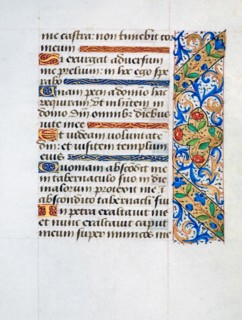 me castra: non timebit cor
meum
Si exurgat adversum
me prelium: in hoc ego spe
rabo
Unam petii a domino hanc
requiram: ut inhitem in
domo dni omnibus diebus
vite mee
Ut videam voluntate
dni: et visitem templum
eius
Quoniam abscōdit me
in tabernaculo suo: in die
malorum protexit me i
abscondito tabernacli sui
In petra exaltavit me
et nunc exaltavit caput
meum super inimicos me